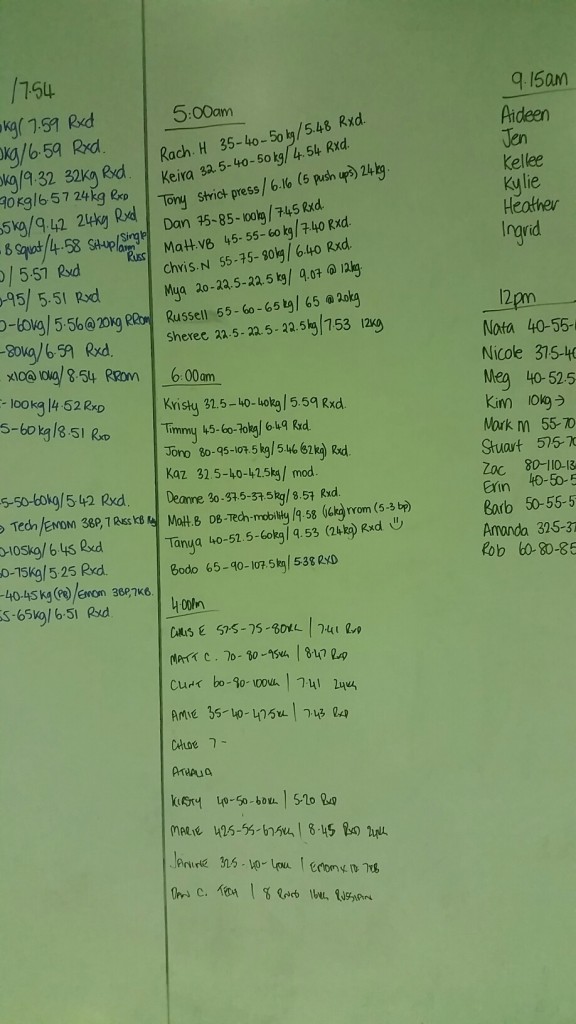 /7.54
kg/ 7.59 Rxd
kg/6.59 Rxd.
kg/9.32 32kg Rxd.
90kg/6.57 24kg Rxd
5kg/9.42 24kg Rxd
B Squat/4.58 Sit-up/Single arm Russ
/ 5.57 Rxd
-95/ 5.51 Rxd
0-60kg/5.56@20kg RRom
-80kg/6.59 Rxd.
x10@10kg/8.54 RRom
-100kg/4.52 Rxd
5-60kg/8.51 Rxd
5-50-60kg/5.42 Rxd.
→ Tech/Emom 3BP, 7 Russ KB
0-105kg/6.45 Rxd
0-75kg/5.25 Rxd.
-40-45kg(PB)/Emom 3BP, 7KB.
55-65kg/6.51 Rxd.
5:00am
Rach.H 35-40-50kg/5.48 Rxd.
Keira 32.5-40-50kg/4.54 Rxd.
Tony Strict press/6.16 (5 push ups) 24kg.
Dan 75-85-100kg/7.45 Rxd.
Matt.VB 45-55-60kg/7.40 Rxd.
Chris.N 55-75-80kg/6.40 Rxd.
Mya 20-22.5-22.5kg/ 9.07 @ 12kg.
Russell 55-60-65kg/ 65 @ 20kg
Sheree 22.5-22.5-22.5kg/7.53 12kg
6:00am
Kristy 32.5-40-40kg/5.59 Rxd.
Timmy 45-60-70kg/6.49 Rxd.
Jono 80-95-107.5kg/5.46 (32kg) Rxd.
Kaz 32.5-40-42.5kg/ mod.
Deanne 30-37.5-37.5kg/8.57 Rxd.
Matt.B DB-Tech-mobility/9.58 (16kg) rrom (5-3 bp)
Tanya 40-52.5-60kg/9.53 (24kg) Rxd ☺
Bodo 65-90-107.5kg/5.38 RXD
4:00pm
CHRIS E 57.5-75-80KG | 7.41 RxD
MATT C. 70-80-95KG | 8.47 RxD
CLINT 60-80-100KG | 7.41 24KG
AMIE 35-40-47.5KG | 7.43 RxD
CHLOE 7-
ATHALIA
KIRSTY 40-50-60KG | 5.20 RxD
MARIE 42.5-55-67.5KG | 8.45 RxD 24KG
JANINE 32.5-40-40KG | EMOM 7KB
DAN C. TECH | 8 RNDS 16KG RUSSIAN
9.15am
Aideen
Jen
Kellee
Kylie
Heather
Ingrid
12pm
Nata 40-55-
Nicole 37.5-40
Meg 40-52.5
Kim 10kg →
Mark m 55-70
Stuart 57.5-70
Zac 80-110-13
Erin 40-50-5
Barb 50-55-5
Amanda 32.5-37
Rob 60-80-85